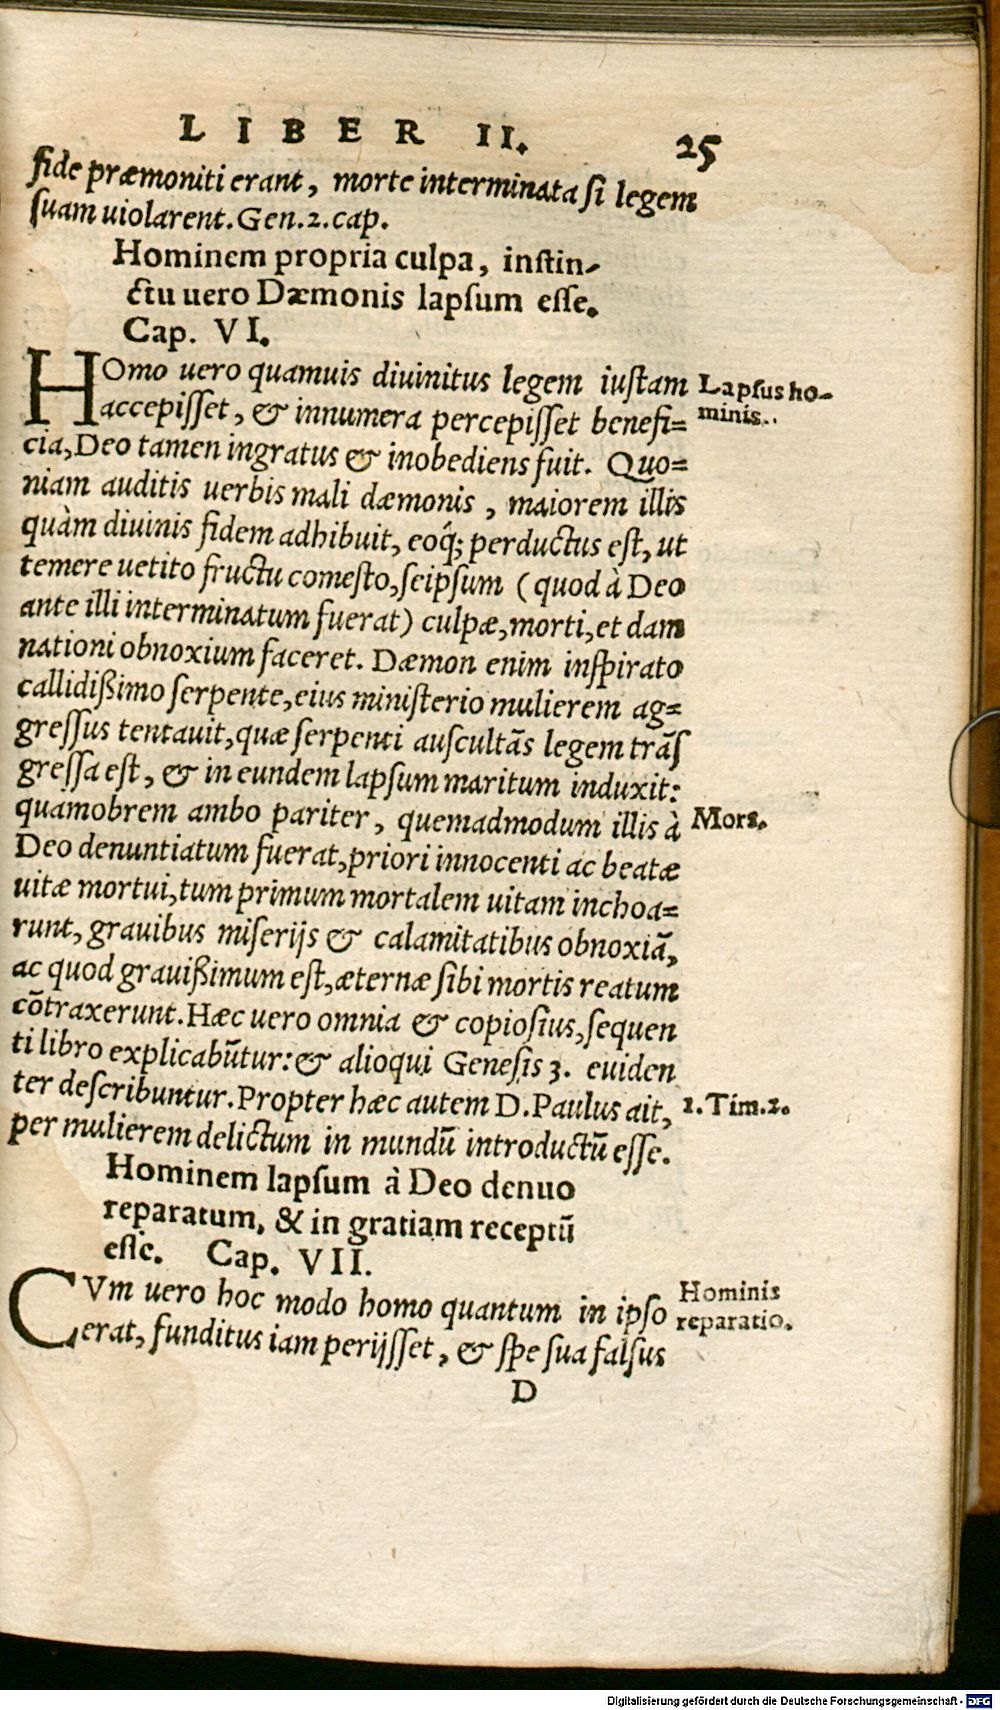 LIBER II. 25
fide præmoniti erant, morte interminata ſi legem
ſuam uiolarent. Gen. 2. cap.
Hominem propria culpa, inſtin-
ctu uero Dæmonis lapſum eſſe.
Cap. VI.
HOmo uero quamuis diuinitus legem iuſtam
Lapſus ho-
accepiſſet, & innumera percepiſſet benefi=
minis.
cia, Deo tamen ingratus & inobediens fuit. Quo=
niam auditis uerbis mali dæmonis, maiorem illis
quàm diuinis fidem adhibuit, eoq́; perductus eſt, ut
temere uetito fructu comeſto, ſeipſum (quod à Deo
ante illi interminatum fuerat) culpæ, morti, et dam
nationi obnoxium faceret. Dæmon enim inſpirato
callidißimo ſerpente, eius miniſterio mulierem ag=
greſſus tentauit, quæ ſerpenti auſcultãs legem trãſ
greſſa eſt, & in eundem lapſum maritum induxit:
quamobrem ambo pariter, quemadmodum illis à
Mors.
Deo denuntiatum fuerat, priori innocenti ac beatæ
uitæ mortui, tum primum mortalem uitam inchoa=
runt, grauibus miſerijs & calamitatibus obnoxiã,
ac quod grauißimum eſt, æternæ ſibi mortis reatum
cõtraxerunt. Hæc uero omnia & copioſius, ſequen
ti libro explicabũtur: & alioqui Geneſis 3. euiden
ter deſcribuntur. Propter hæc autem D. Paulus ait,
1. Tim. 2.
per mulierem delictum in mundũ introductũ eſſe.
Hominem lapſum à Deo denuo
reparatum, & in gratiam receptũ
eſſe. Cap. VII.
CVm uero hoc modo homo quantum in ipſo
Hominis
reparatio.
erat, funditus iam perijſſet, & ſpe ſua falſus
D
Digitalisierung gefördert durch die Deutsche Forschungsgemeinschaft - DFG